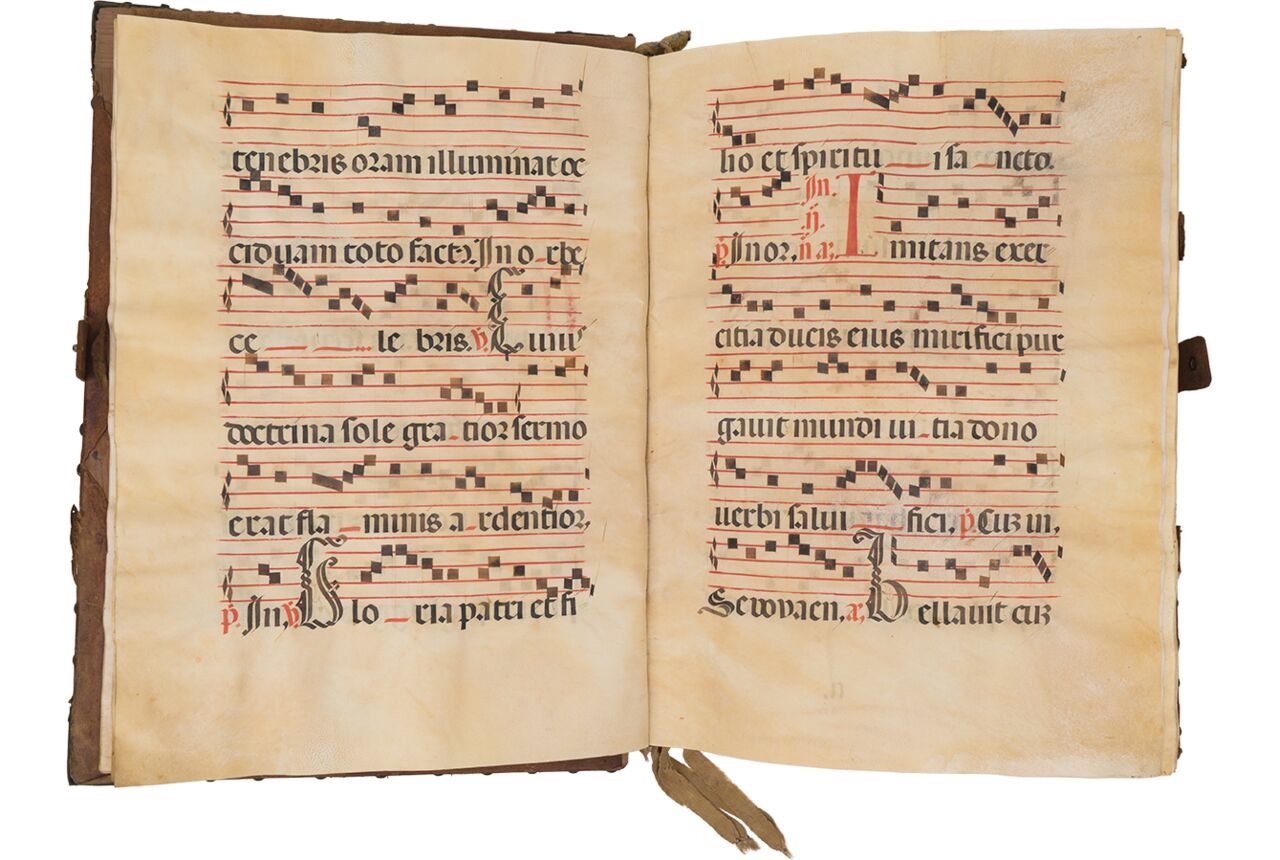 tenebris oram illuminat oc
ciduam toto facta. In orbe
ce le bris. ℣. Cuius
doctrina sole gratior sermo
erat flaminis ardentior,
p̃. In, ℣. Gloria patri et fi
lio et spiritui sancto.
p̃. In or, In ij. ñ a; Imitans exer
citia ducis eius mirifici pur
gauit mundi uitia dono
uerbi salui fici, p̃. Cuius ui,
Seuouaen, a; Bellauit cuz